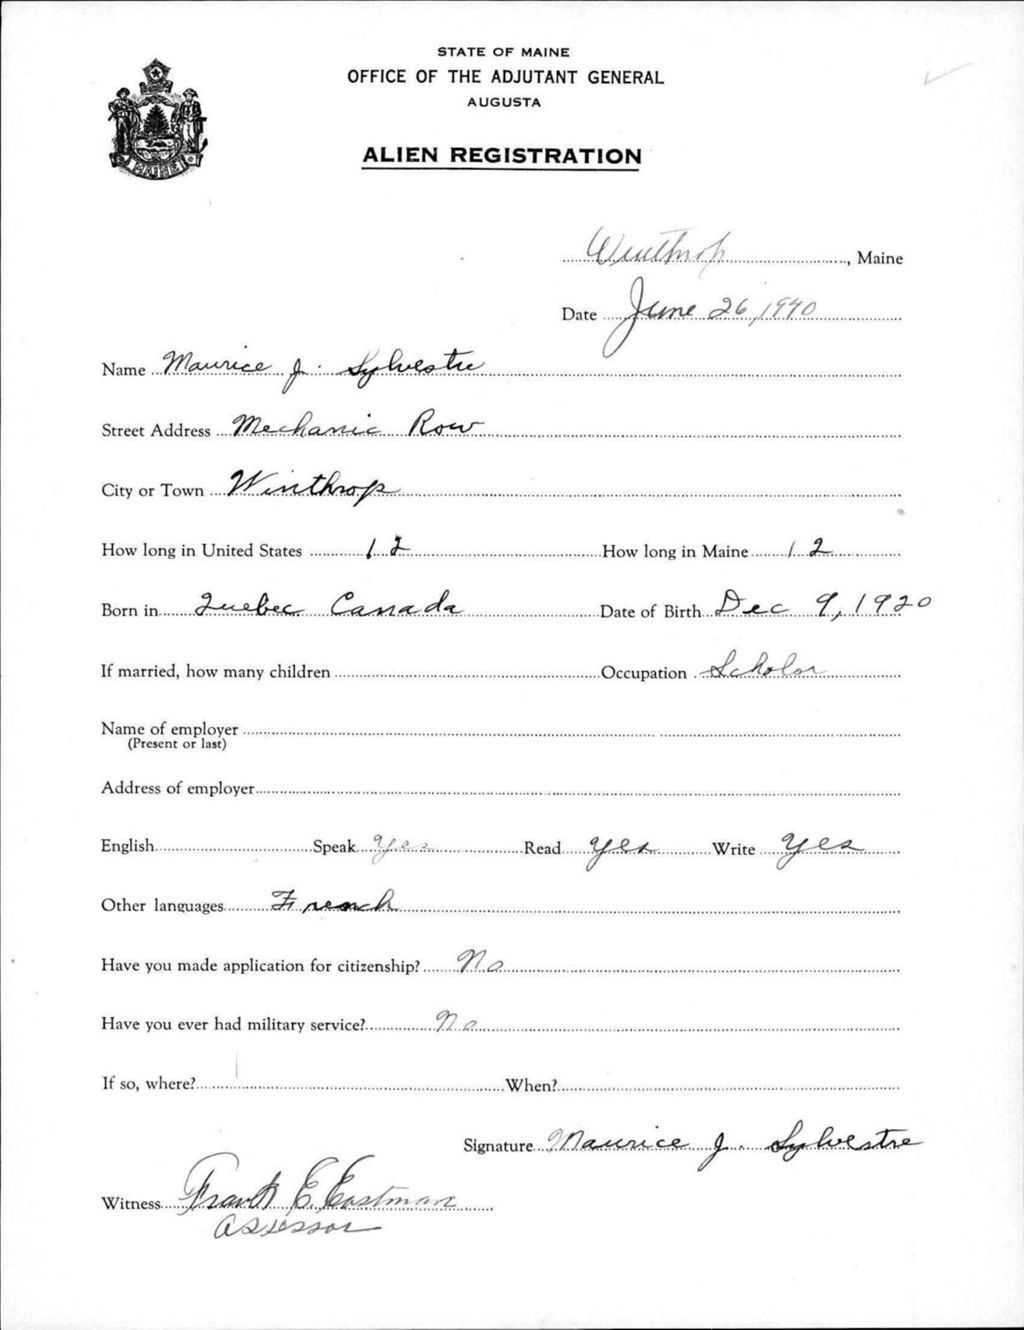 STATE OF MAINE
OFFICE OF THE ADJUTANT GENERAL
AUGUSTA
ALIEN REGISTRATION
MAINE
Winthrop, Maine
Date June 26, 1940
Name Maurice J. Sylvestre
Street Address Mechanic Row
City or Town Winthrop
How long in United States 12 How long in Maine 12
Born in Quebec Canada Date of Birth Dec 9, 1920
If married, how many children Occupation Scholar
Name of employer
(Present or last)
Address of employer
English Speak Yes Read Yes Write Yes
Other languages French
Have you made application for citizenship? No
Have you ever had military service? No
If so, where? When?
Signature Maurice J. Sylvestre
Witness Frank E. Eastman
Assessor